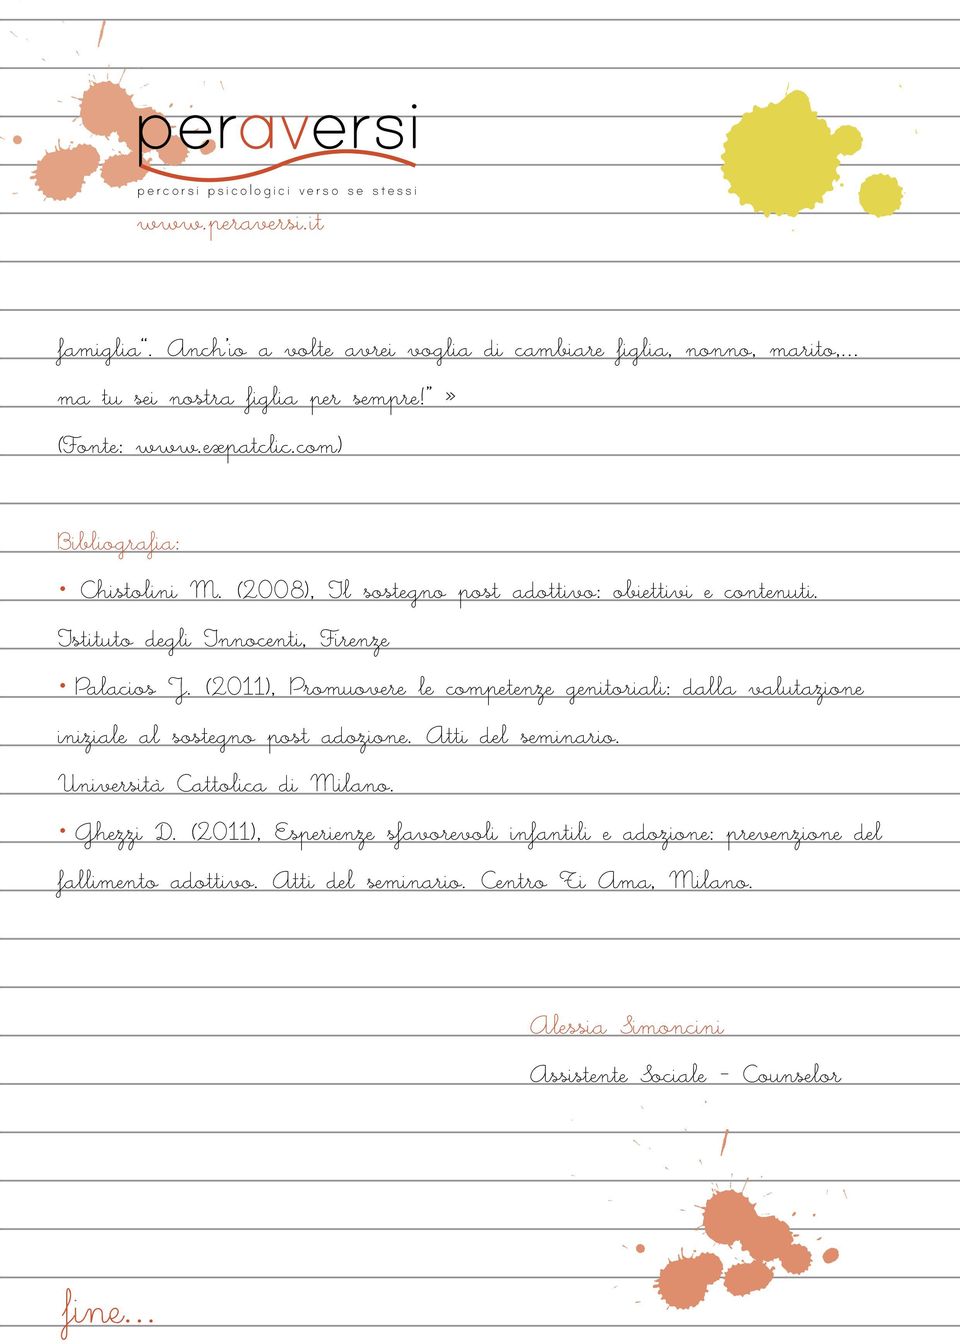 peraversi
percorsi psicologici verso se stessi
www.peraversi.it
famiglia“. Anch’io a volte avrei voglia di cambiare figlia, nonno, marito,...
ma tu sei nostra figlia per sempre!” »
(Fonte: www.expatclic.com)
Bibliografia:
• Chistolini M. (2008), Il sostegno post adottivo: obiettivi e contenuti.
Istituto degli Innocenti, Firenze
• Palacios J. (2011), Promuovere le competenze genitoriali: dalla valutazione
iniziale al sostegno post adozione. Atti del seminario.
Università Cattolica di Milano.
• Ghezzi D. (2011), Esperienze sfavorevoli infantili e adozione: prevenzione del
fallimento adottivo. Atti del seminario. Centro Ti Ama, Milano.
Alessia Simoncini
Assistente Sociale - Counselor
fine...